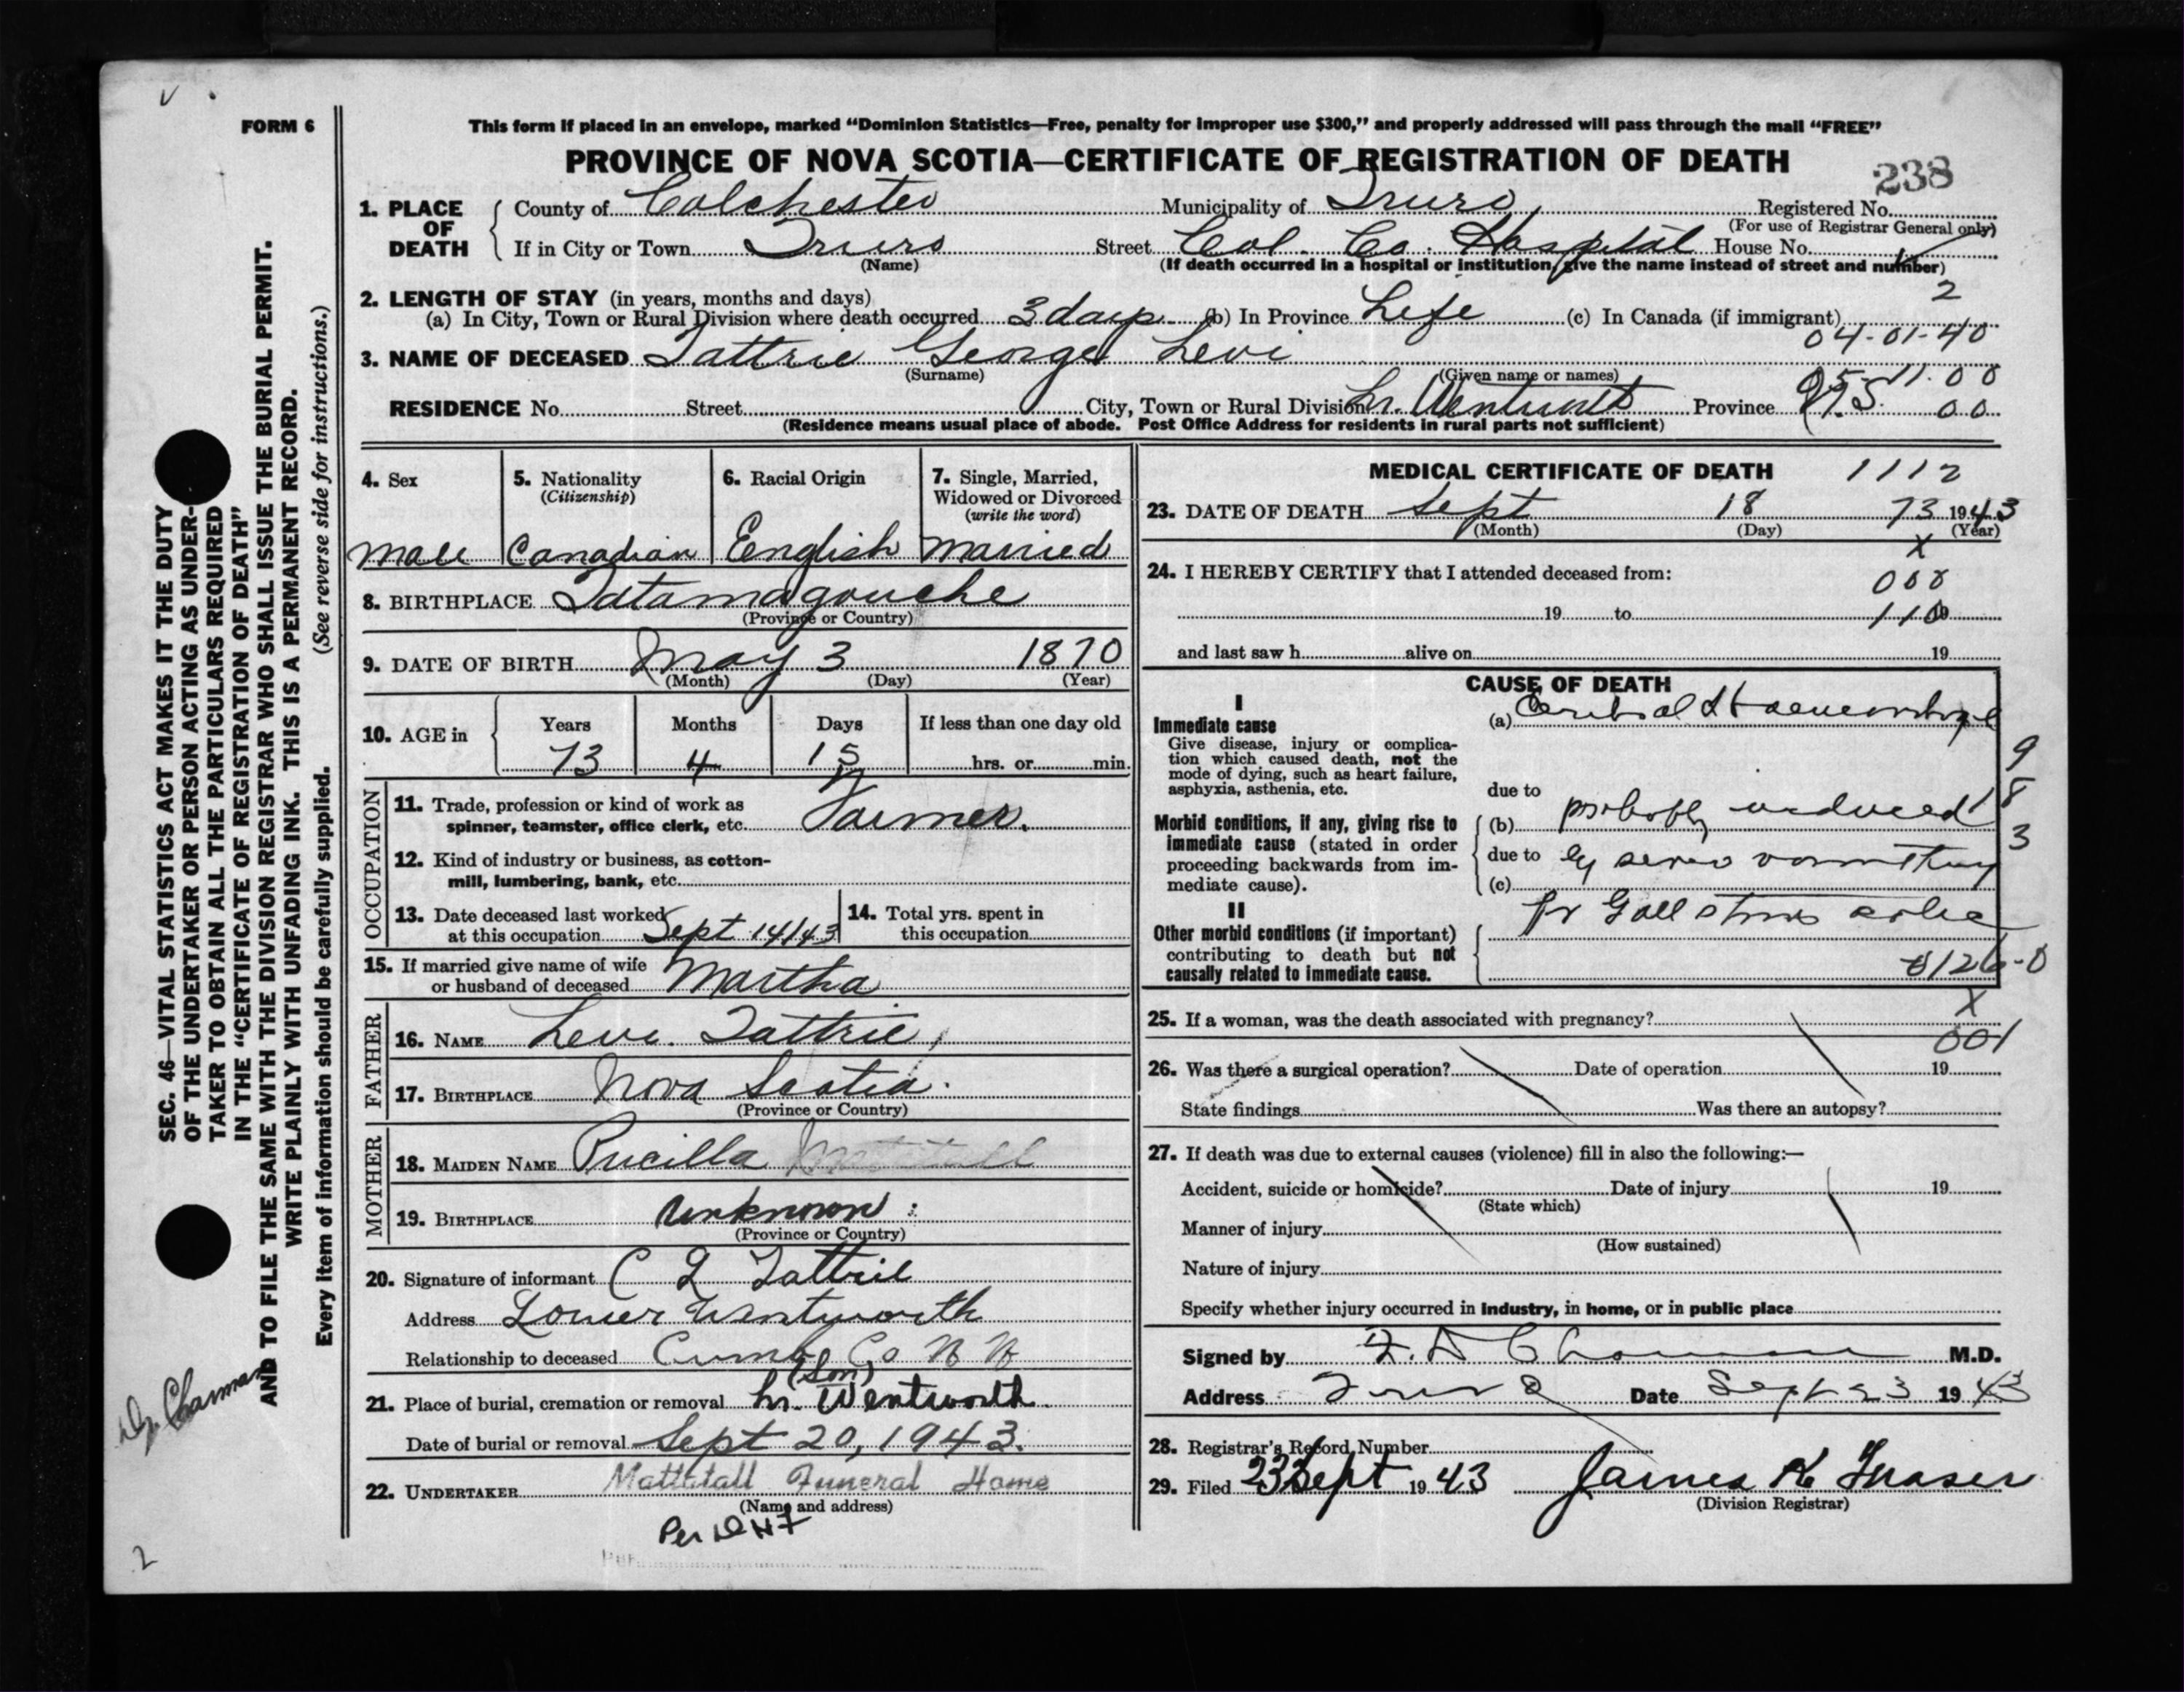 FORM 6
This form if placed in an envelope, marked “Dominion Statistics—Free, penalty for improper use $300,” and properly addressed will pass through the mail “FREE”
PROVINCE OF NOVA SCOTIA—CERTIFICATE OF REGISTRATION OF DEATH
238
1. PLACE OF DEATH
County of Colchester Municipality of Truro Registered No.
(For use of Registrar General only)
If in City or Town Truro Street Col. Co. Hospital House No.
(Name) (If death occurred in a hospital or institution, give the name instead of street and number)
2. LENGTH OF STAY (in years, months and days)
2
(a) In City, Town or Rural Division where death occurred 3 days (b) In Province Life (c) In Canada (if immigrant)
04-01-40
3. NAME OF DECEASED Tattrie George Levi
(Surname) (Given name or names)
RESIDENCE No. Street City, Town or Rural Division Lr. Wentworth Province N.S. 00
(Residence means usual place of abode. Post Office Address for residents in rural parts not sufficient)
4. Sex
Male
5. Nationality
(Citizenship)
Canadian
6. Racial Origin
English
7. Single, Married, Widowed or Divorced
(write the word)
Married
8. BIRTHPLACE Tatamagouche
(Province or Country)
9. DATE OF BIRTH May 3 1870
(Month) (Day) (Year)
10. AGE in
Years Months Days If less than one day old
73 4 15 hrs. or min.
OCCUPATION
11. Trade, profession or kind of work as
spinner, teamster, office clerk, etc. Farmer.
12. Kind of industry or business, as cotton-
mill, lumbering, bank, etc.
13. Date deceased last worked
at this occupation Sept 14/43
14. Total yrs. spent in
this occupation
15. If married give name of wife
or husband of deceased Martha
FATHER
16. NAME Levi Tattrie
17. BIRTHPLACE Nova Scotia.
(Province or Country)
MOTHER
18. MAIDEN NAME Pricilla
19. BIRTHPLACE unknown
(Province or Country)
20. Signature of informant C L Tattrie
Address Lower Wentworth
Relationship to deceased Cumb Co
(Son)
21. Place of burial, cremation or removal Lr. Wentworth.
Date of burial or removal Sept 20, 1943.
22. UNDERTAKER Mattatall Funeral Home
(Name and address)
MEDICAL CERTIFICATE OF DEATH 1112
23. DATE OF DEATH Sept 18 73 1943
(Month) (Day) (Year)
X
24. I HEREBY CERTIFY that I attended deceased from:
19 to 19
110
and last saw h alive on 19
CAUSE OF DEATH
I
Immediate cause
Give disease, injury or complica-
tion which caused death, not the
mode of dying, such as heart failure,
asphyxia, asthenia, etc.
(a) Cerebral Haemorrhage
due to
Morbid conditions, if any, giving rise to
immediate cause (stated in order
proceeding backwards from im-
mediate cause).
(b) probably induced
due to by severe vomiting
(c)
fr Gall stones colic
9
18
3
II
Other morbid conditions (if important)
contributing to death but not
causally related to immediate cause.
126-0
25. If a woman, was the death associated with pregnancy? X
001
26. Was there a surgical operation? Date of operation 19
State findings Was there an autopsy?
27. If death was due to external causes (violence) fill in also the following:—
Accident, suicide or homicide? Date of injury 19
(State which)
Manner of injury
(How sustained)
Nature of injury
Specify whether injury occurred in industry, in home, or in public place
Signed by M.D.
Address Truro Date Sept 23 1943
28. Registrar's Record Number
29. Filed 23 Sept 1943 James K Fraser
(Division Registrar)
SEC. 46—VITAL STATISTICS ACT MAKES IT THE DUTY
OF THE UNDERTAKER OR PERSON ACTING AS UNDER-
TAKER TO OBTAIN ALL THE PARTICULARS REQUIRED
IN THE “CERTIFICATE OF REGISTRATION OF DEATH”
AND TO FILE THE SAME WITH THE DIVISION REGISTRAR WHO SHALL ISSUE THE BURIAL PERMIT.
WRITE PLAINLY WITH UNFADING INK. THIS IS A PERMANENT RECORD.
Every item of information should be carefully supplied. (See reverse side for instructions.)
2